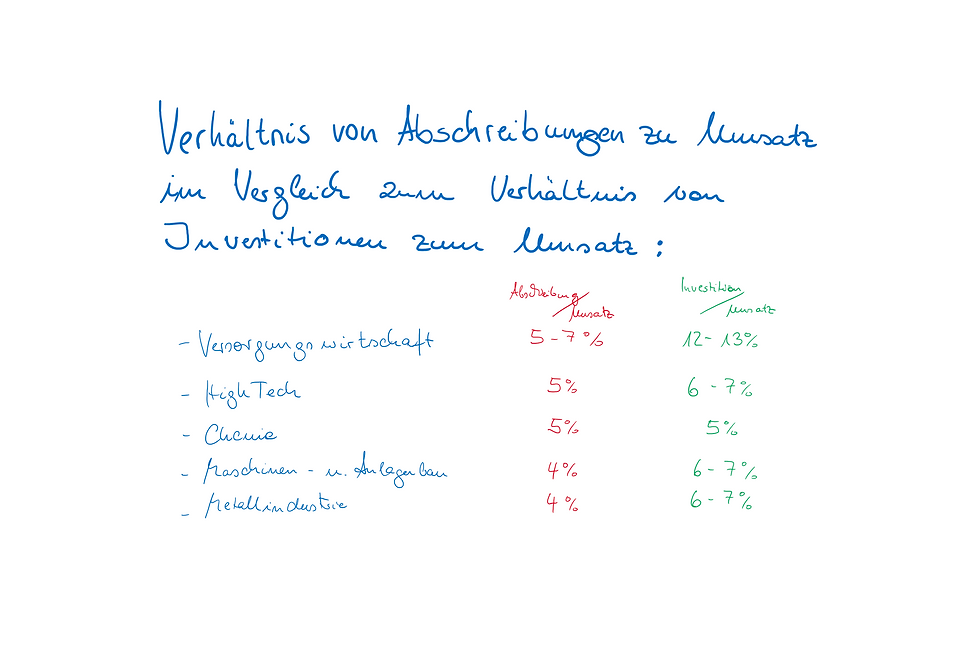 Verhältnis von Abschreibungen zu Umsatz
im Vergleich zum Verhältnis von
Investitionen zum Umsatz :
Abschreibung/Umsatz Investition/Umsatz
- Versorgungswirtschaft 5 - 7 % 12 - 13%
- HighTech 5% 6 - 7 %
- Chemie 5% 5 %
- Maschinen - u. Anlagenbau 4% 6 - 7 %
- Metallindustrie 4 % 6 - 7 %